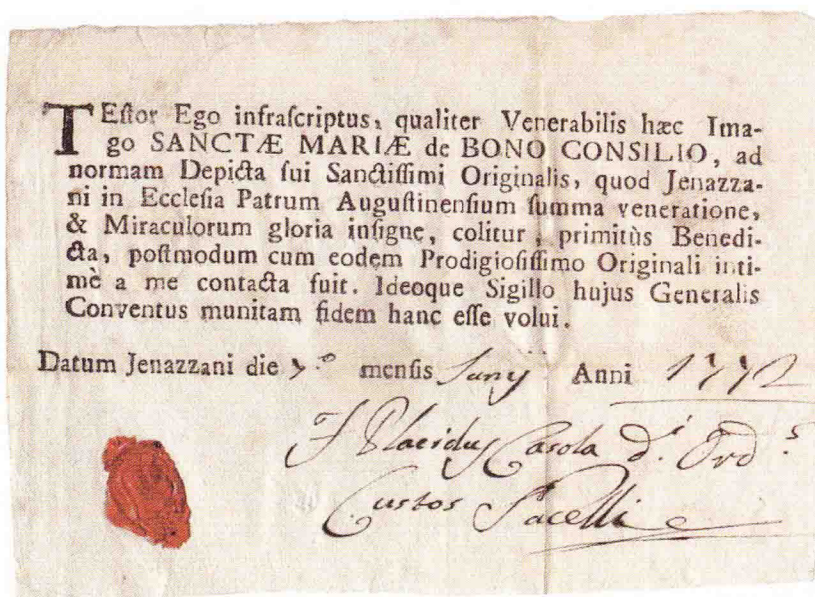 TEſtor Ego infraſcriptus, qualiter Venerabilis hæc Ima-
go SANCTÆ MARIÆ de BONO CONSILIO, ad
normam Depicta ſui Sanctiſſimi Originalis, quod Jenazza-
ni in Eccleſia Patrum Auguſtinenſium ſumma veneratione,
& Miraculorum gloria inſigne, colitur, primitùs Benedi-
cta, poſtmodum cum eodem Prodigioſiſſimo Originali inti-
mè a me contacta fuit. Ideoque Sigillo hujus Generalis
Conventus munitam fidem hanc eſſe volui.
Datum Jenazzani die menſis Juny Anni 1772
F Placidus Casola d.i Ord.s
Custos Sacelli